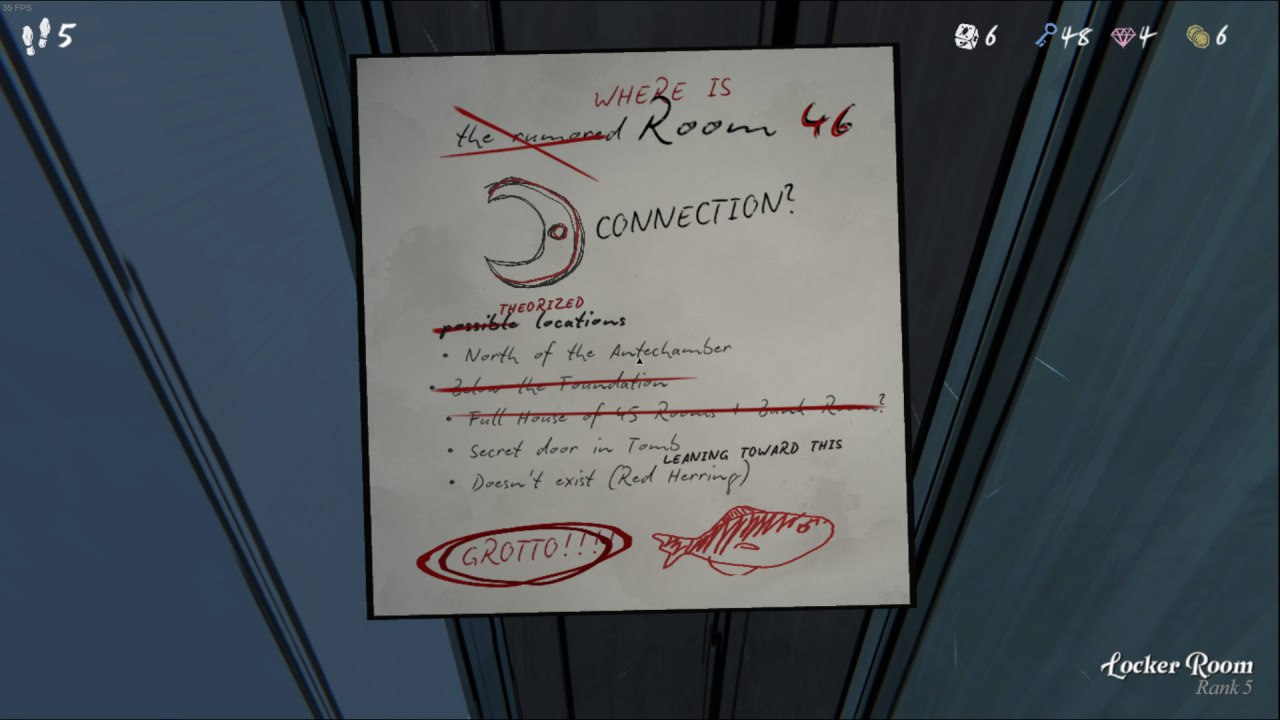 35 FPS
5
6 48 4 6
WHERE IS
the rumored Room 46
CONNECTION?
THEORIZED
possible locations
• North of the Antechamber
• Below the Foundation
• Full House of 45 Rooms + Bunk Room?
• Secret door in Tomb
LEANING TOWARD THIS
• Doesn't exist (Red Herring)
GROTTO!!!
Locker Room
Rank 5